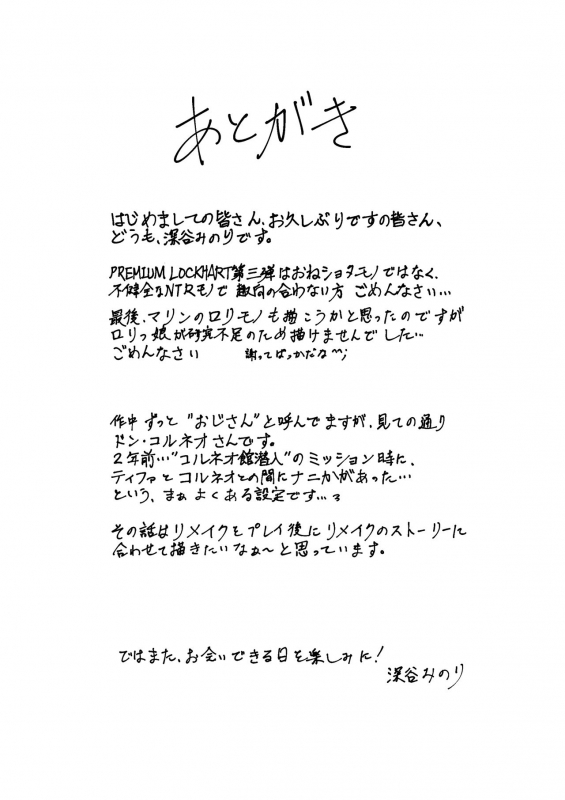 あとがき
はじめましての皆さん、お久しぶりですの皆さん、
どうも、深谷みのりです。
PREMIUM LOCKHART第三弾はおねショタモノではなく、
不健全なNTRモノで 趣向の合わない方 ごめんなさい…
最後、マリンのロリモノも描こうかと思ったのですが
ロリっ娘が研究不足のため描けませんでした…
ごめんなさい 謝ってばっかだな^^;
作中 ずっと "おじさん"と呼んでますが、見ての通り
ドン・コルネオさんです。
2年前…"コルネオ館潜入"のミッション時に、
ティファとコルネオとの間にナニかがあった…
という、まぁ よくある設定です…
その話はリメイクをプレイ後に リメイクのストーリーに
合わせて描きたいなぁ〜と思っています。
ではまた、お会いできる日を楽しみに!
深谷みのり